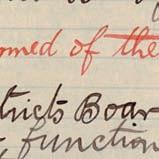 rmed of the
tricts Boar
function